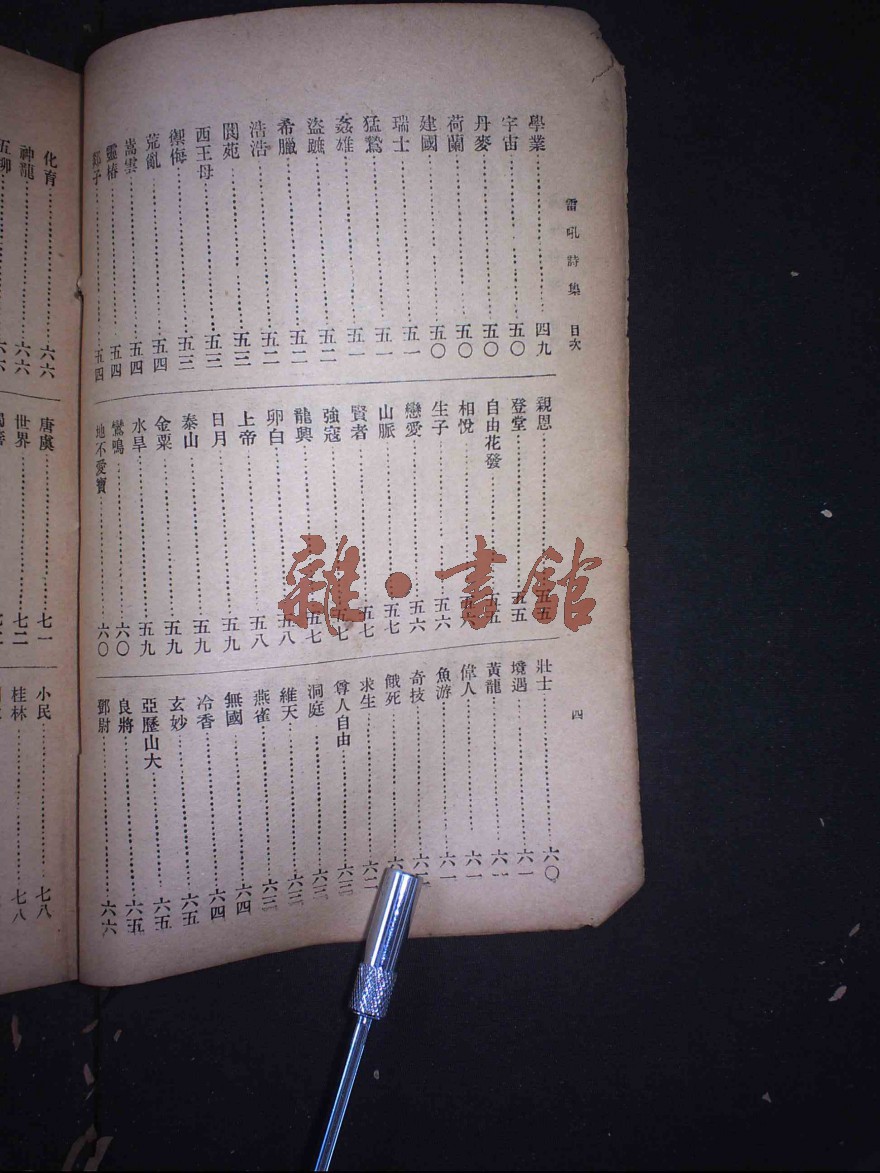 雷吼詩集 目次
四
學業……四九
宇宙……五〇
丹麥……五〇
荷蘭……五〇
建國……五〇
瑞士……五一
猛鷙……五一
姦雄……五一
盜蹠……五二
希臘……五二
浩浩……五二
閬苑……五三
西王母……五三
禦侮……五三
荒亂……五四
嵩雲……五四
靈椿……五四
子……五四
親恩……五五
登堂……五五
自由花發……五五
相悅……五六
生子……五六
戀愛……五六
山脈……五七
賢者……五七
強寇……五七
龍興……五七
卵白……五八
上帝……五八
日月……五九
泰山……五九
金粟……五九
水旱……五九
鸞鳴……六〇
地不愛寶……六〇
壯士……六〇
境遇……六一
黃龍……六一
偉人……六一
魚游……六一
奇技……六
餓死……六
求生……六二
尊人自由……六三
洞庭……六三
維天……六三
燕雀……六三
無國……六四
冷香……六四
玄妙……六五
亞歷山大……六五
良將……六五
鄧尉……六六
化育……六六
神龍……六六
五……六六
唐虞……七一
世界……七二
小民……七八
桂林……七八
雜·書館